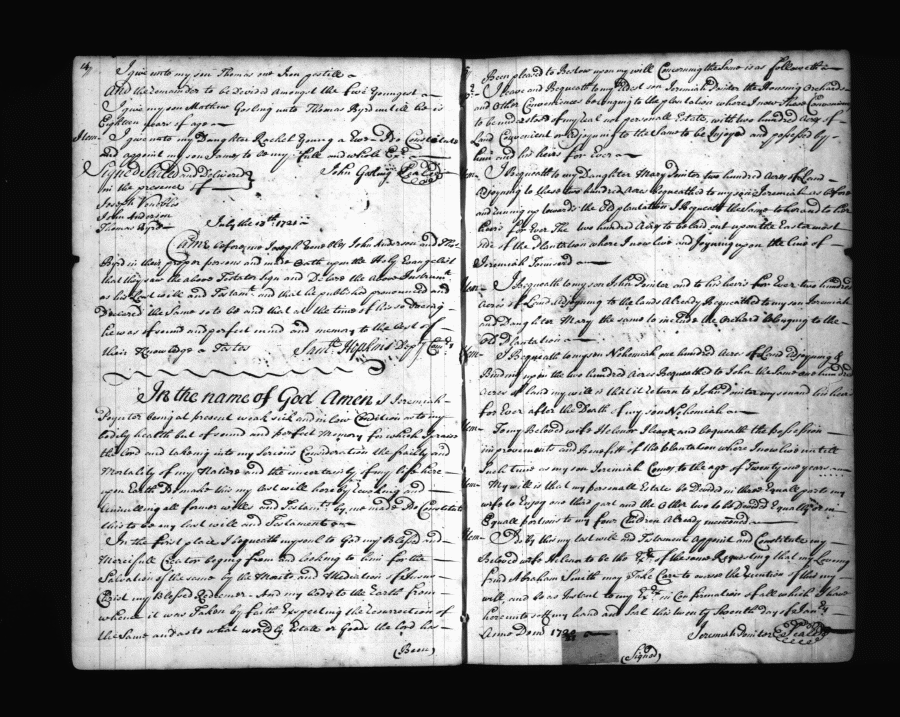 I give unto my son Thomas one Iron pestill
And the remander to be Divided Amongst the five Youngest
I give my son Mathew Gosling unto Thomas Byrd untill he is
Eighteen years of age
Item I give unto my Daughter Rachel Young a Ewe I Do Constitute
And appoint my son James to be my full and whole Exr
Signed Sealed and Delivered John Gosling Seal
in the presence of
Joseph Venables
John Anderson
Thomas Byrd July the 18th 172
Came before me Joseph Venables John Anderson and Tho
Byrd in their proper persons and made Oath upon the Holy Evangelist
that they saw the above Testator Sign and Declare the Above Instrumt
as his Last will and Testamt and that he published pronounced and
Declared the Same so to be and that at the time of his so Doeing
he was of sound and perfect mind and memory to the best of
their Knowledge Saml Hopkins Depty Comry
In the name of God Amen I Jeremiah
Poynter being at present weak sick and in low Condition as to my
bodily health but of sound and perfect Memory for which I praise
the Lord and takeing into my Serious Consideration the frailty and
Mortality of my Nature and the uncertainty of my life here
upon Earth Do make this my last will hereby revokeing and
Annulling all former wills and Testamts by me made Do Constitute
this to be my last will and Testament
In the first place I bequeath my soul to God my Blessed and
Mercifull Creator beging from and looking to him for the
Salvation of the same by the Merits and Mediation of Jesus
Christ my Blessed Redeemer And my body to the Earth from
whence it was Taken by faith Expecting the resurrection of
the Same and as to what worldly Estate or Goods the Lord has
(Been)
Been pleased to Bestow upon my will Concerning the Same is as followeth
I Leave and Bequeath to my Eldest son Jeremiah Pointer the Housing Orchards
and Other Conveniences belonging to the plantation where I now live
to be understood of my real not personall Estate, with two hundred Acres of
Land Convenient and adjoyning to the Same to be Enjoyed and possessed by
him and his heirs for Ever
I Bequeath to my Daughter Mary Pointer two hundred Acres of Land
Adjoyning to these two hundred Acres bequeathed to my son Jeremiah as before
and running up towards the Old plantation I Bequeath the Same to her and to her
heirs for Ever The two hundred Acres to be laid out upon the Eastermost
side of the Plantation where I now live and Joyning upon the line of
Jeremiah Townsend
Item I Bequeath to my son John Pointer and to his heirs for Ever two hundred
Acres of Land adjoyning to the lands Already Bequeathed to my son Jeremiah
and Daughter Mary the same to include the Orchard belonging to the
Old plantation
Item I Bequeath to my son Nehemiah one hundred Acres of Land Adjoyning &
Binding upon the two hundred Acres Bequeathed to John the Same one hundred
Acres of land my will is that it return to John Pointer my son and his heirs
for Ever after the Death of my son Nehemiah
Item To my Beloved wife Helenor I leave and bequeath the possession
improvements and benefitt of the plantation where I now live untill
such time as my son Jeremiah Comes to the age of Twenty one years
Item My will is that my personall Estate be Divided in three Equall parts my
wife to Enjoy one third part and the Other two to be Divided Equally or in
Equall portions to my four Children Already mentioned
Item I Do by this my last will and Testament Appoint and Constitute my
Beloved wife Helenor to be the Exr of the same Requesting that my Loving
friend Abraham Smith may Take Care to oversee the Execution of this my
will and be as Instrut to my Exr in Confirmation of all which I have
hereunto sett my hand and Seal this twenty Seventh day of Janry
Anno Dom 172 Jeremiah Pointer Seal
(Signed)